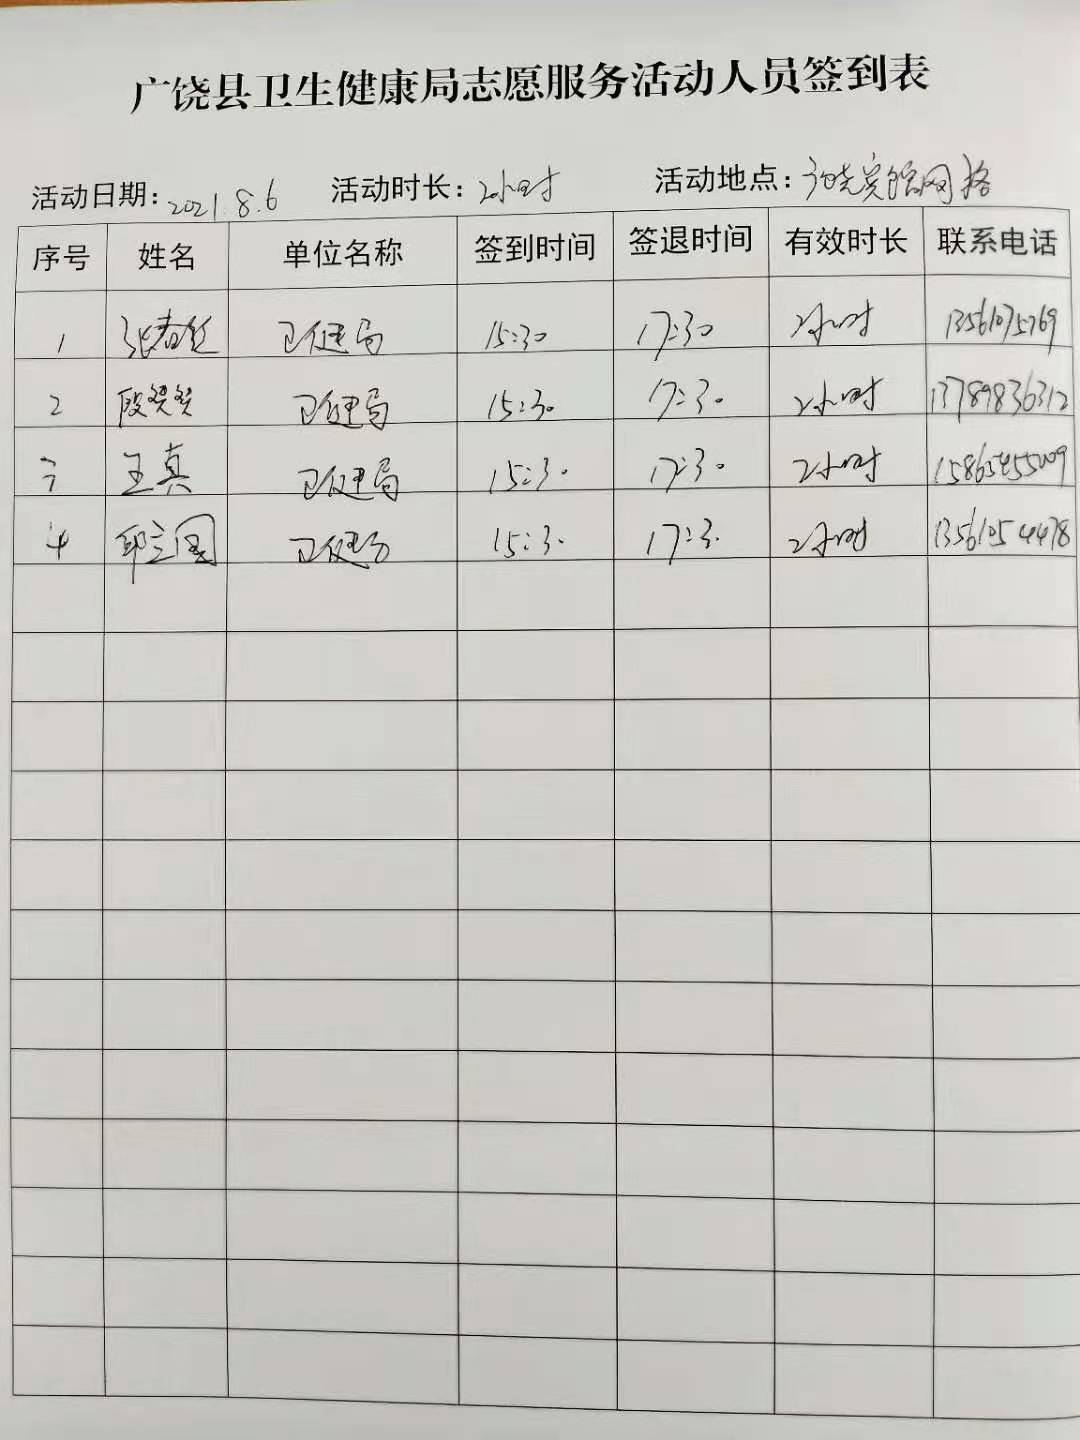 广饶县卫生健康局志愿服务活动人员签到表
活动日期：2021.8.6 活动时长：2小时 活动地点：广饶宾馆网格
序号 姓名 单位名称 签到时间 签退时间 有效时长 联系电话
1 张春红 卫健局 15:30 17:30 2小时 13561075769
2 段贤贤 卫健局 15:30 17:30 2小时 13789836312
3 王真 卫健局 15:30 17:30 2小时
4 邱立国 卫健局 15:30 17:30 2小时 13561054478